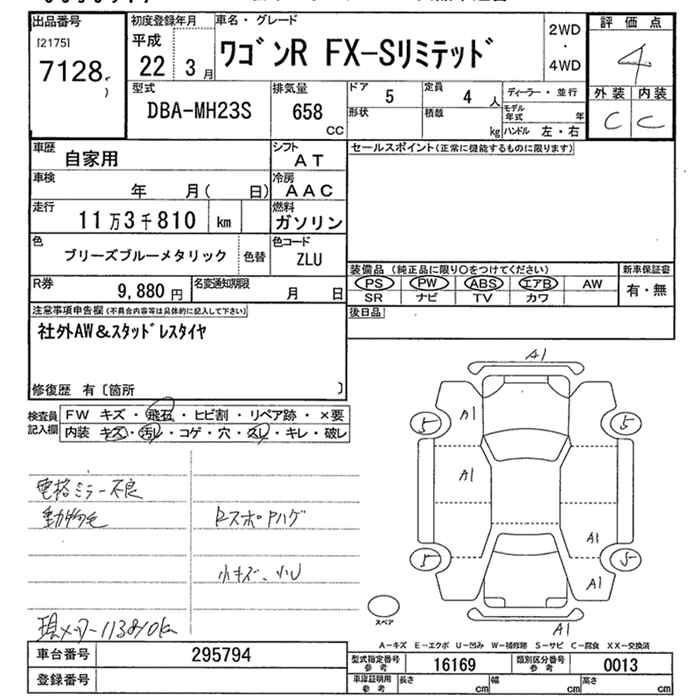 出品番号 初度登録年月 車名・グレード 評価点
[2175] 平成 ワゴンR FX-Sリミテッド 2WD・4WD 4
7128 22年 3月
型式 排気量 ドア 5 定員 4人 ディーラー・並行 外装 内装
DBA-MH23S 658 CC 形状 積載 kg モデル年式 年 C C
ハンドル 左・右
車歴 自家用 シフト AT セールスポイント(正常に機能するものに限ります)
車検 年 月( 日) 冷房 AAC
走行 11万3千810 km 燃料 ガソリン
色 ブリーズブルーメタリック 色替 色コード ZLU
装備品(純正品に限り○をつけてください) 新車保証書
R券 9,880円 名変通知期限 月 日 PS PW ABS エアB AW 有・無
SR ナビ TV カワ
注意事項申告欄(不具合内容等は具体的に記入して下さい) 後日品
社外AW&スタッドレスタイヤ
修復歴 有〔箇所 〕
検査員記入欄 FW キズ・飛石・ヒビ割・リペア跡・×要
内装 キズ・汚レ・コゲ・穴・スレ・キレ・破レ
A1
5 A1 5
A1
A1
5 A1 5
A1
電格ミラー不良
動物毛 RスポAハゲ
小キズ、小U
現メーター113810km スペア
A-キズ E-エクボ U-凹み W-補修跡 S-サビ C-腐食 XX-交換済
車台番号 295794 型式指定番号 参考 16169 類別区分番号 参考 0013
登録番号 車庫証明用 参考 長さ cm 幅 cm 高さ cm